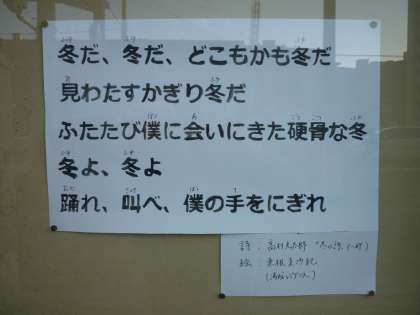 冬だ、冬だ、どこもかも冬だ
見わたすかぎり冬だ
ふたたび僕に会いにきた硬骨な冬
冬よ、冬よ
踊れ、叫べ、僕の手をにぎれ
詩：高村光太郎
絵：